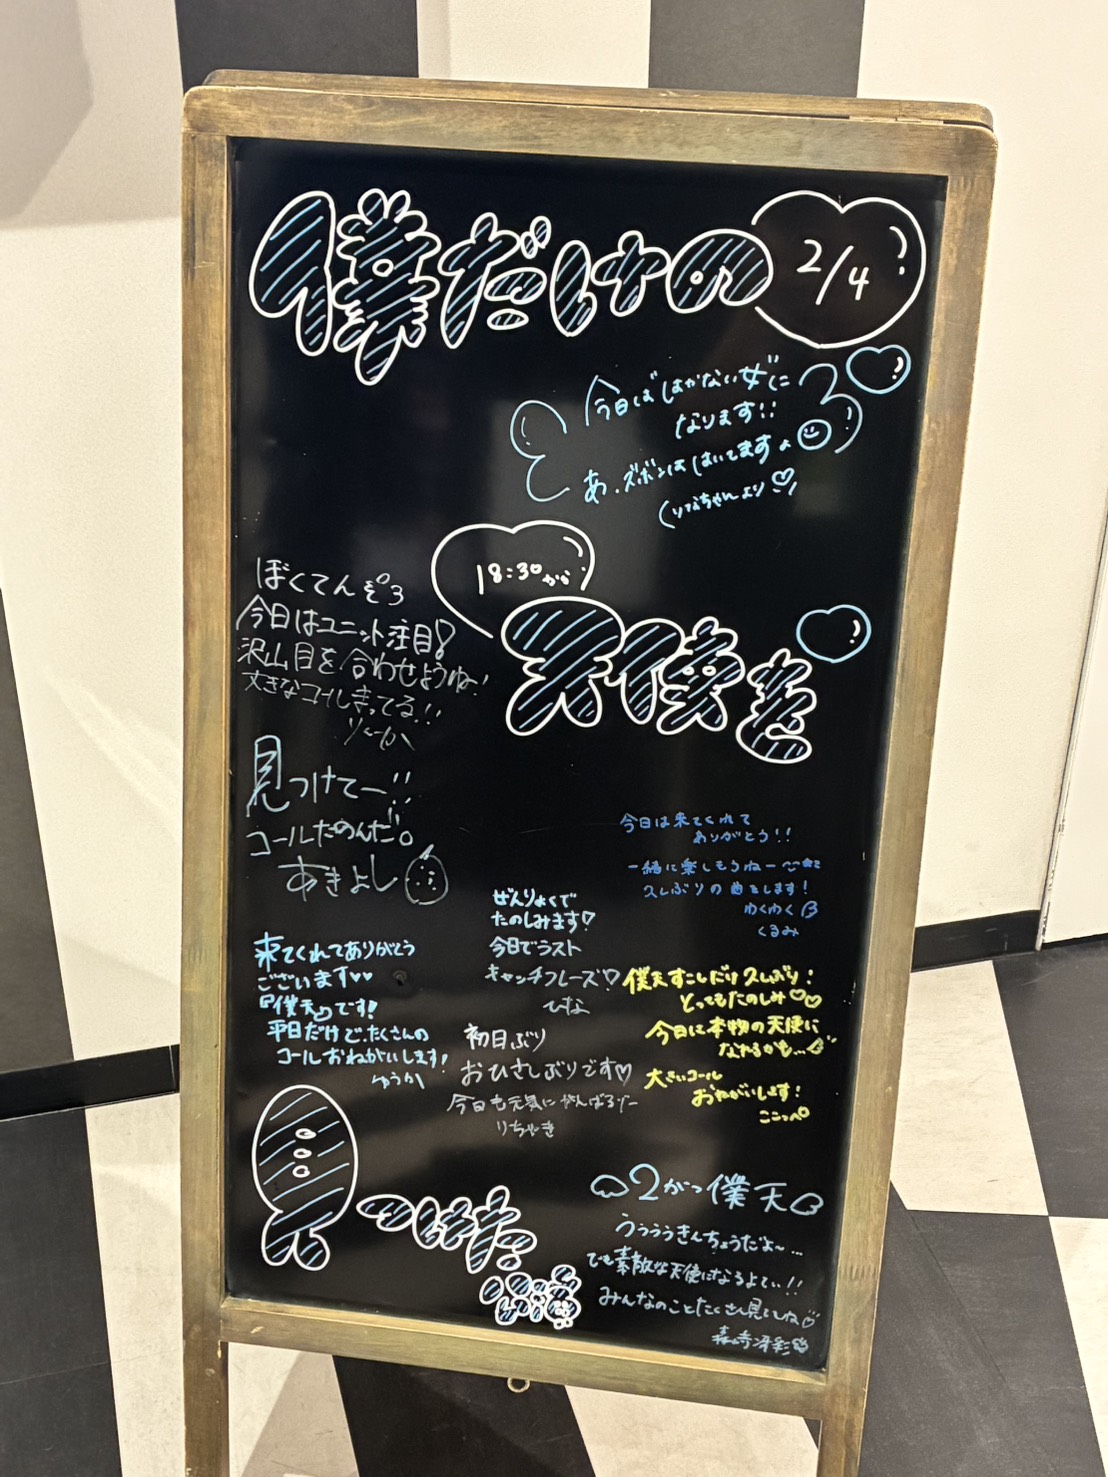 僕だけの
2/4
今日ははかない女に
なります!!
あ、ズボンははいてますよ
18:30から
天使を
ぼくてん
今日はユニット注目!
沢山目を合わせようね!
大きなコールまってる!!
りーか
見つけてー!!
コールたのんだ。
あきよし
今日は来てくれて
ありがとう!!
一緒に楽しもうねー
久しぶりの曲をします!
わくわく
くるみ
ぜんりょくで
たのしみます♡
今日でラスト
キャッチフレーズ♡
ひな
来てくれてありがとう
ございます♡♡
『僕天』です!
平日だけど、たくさんの
コールおねがいします!
ゆうか
僕天すこしだけ久しぶり!
とってもたのしみ♡♡
今日は本物の天使に
なれるかも…
大きいコール
おねがいします!
初日ぶり
おひさしぶりです♡
今日も元気にがんばるぞー
りちゃき
見つけた
公演
2がつ僕天
うううきんちょうだよ〜…
でも素敵な天使になるよてい!!
みんなのことたくさん見としてね♡
森﨑冴彩